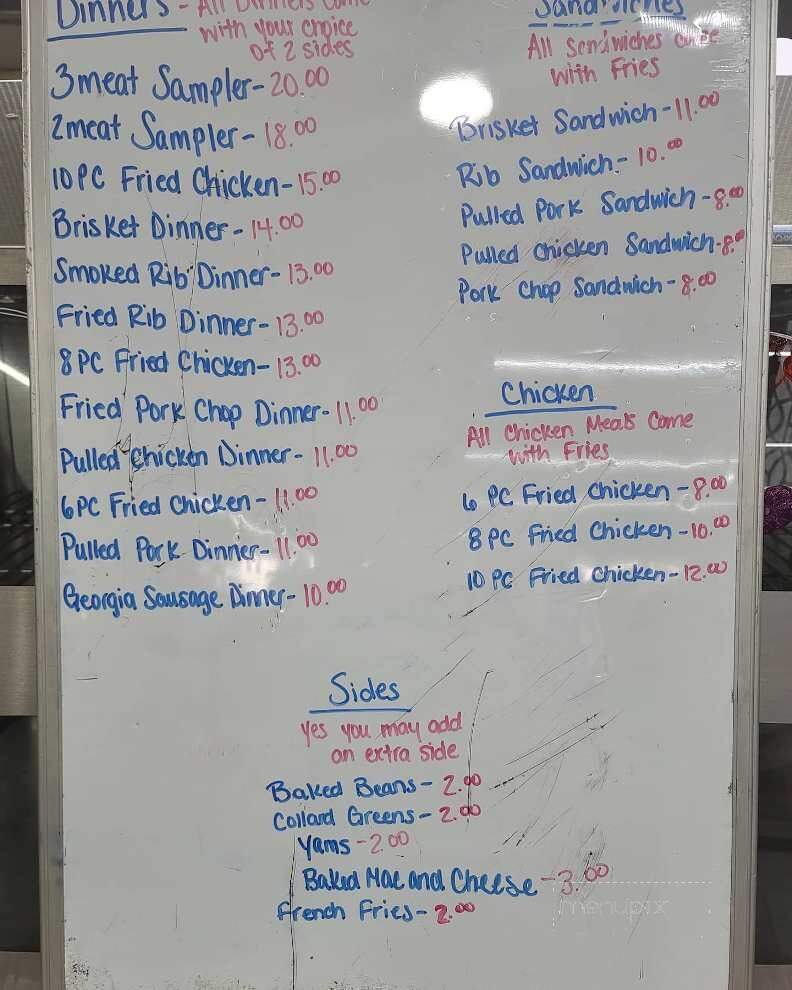 Dinners - All Dinners come
with your choice
of 2 sides
3meat Sampler- 20.00
2meat Sampler- 18.00
10PC Fried Chicken- 15.00
Brisket Dinner- 14.00
Smoked Rib Dinner- 13.00
Fried Rib Dinner- 13.00
8PC Fried Chicken- 13.00
Fried Pork Chop Dinner- 11.00
Pulled Chicken Dinner- 11.00
6PC Fried Chicken- 11.00
Pulled Pork Dinner- 11.00
Georgia Sausage Dinner- 10.00
Sandwiches
All Sandwiches come
with Fries
Brisket Sandwich- 11.00
Rib Sandwich- 10.00
Pulled Pork Sandwich- 8.00
Pulled Chicken Sandwich- 8.00
Pork Chop Sandwich- 8.00
Chicken
All Chicken Meals Come
with Fries
6 PC Fried Chicken- 8.00
8 PC Fried Chicken- 10.00
10 PC Fried Chicken- 12.00
Sides
Yes you may add
an extra side
Baked Beans- 2.00
Collard Greens- 2.00
Yams- 2.00
Baked Mac and Cheese- 3.00
French Fries- 2.00
menupix